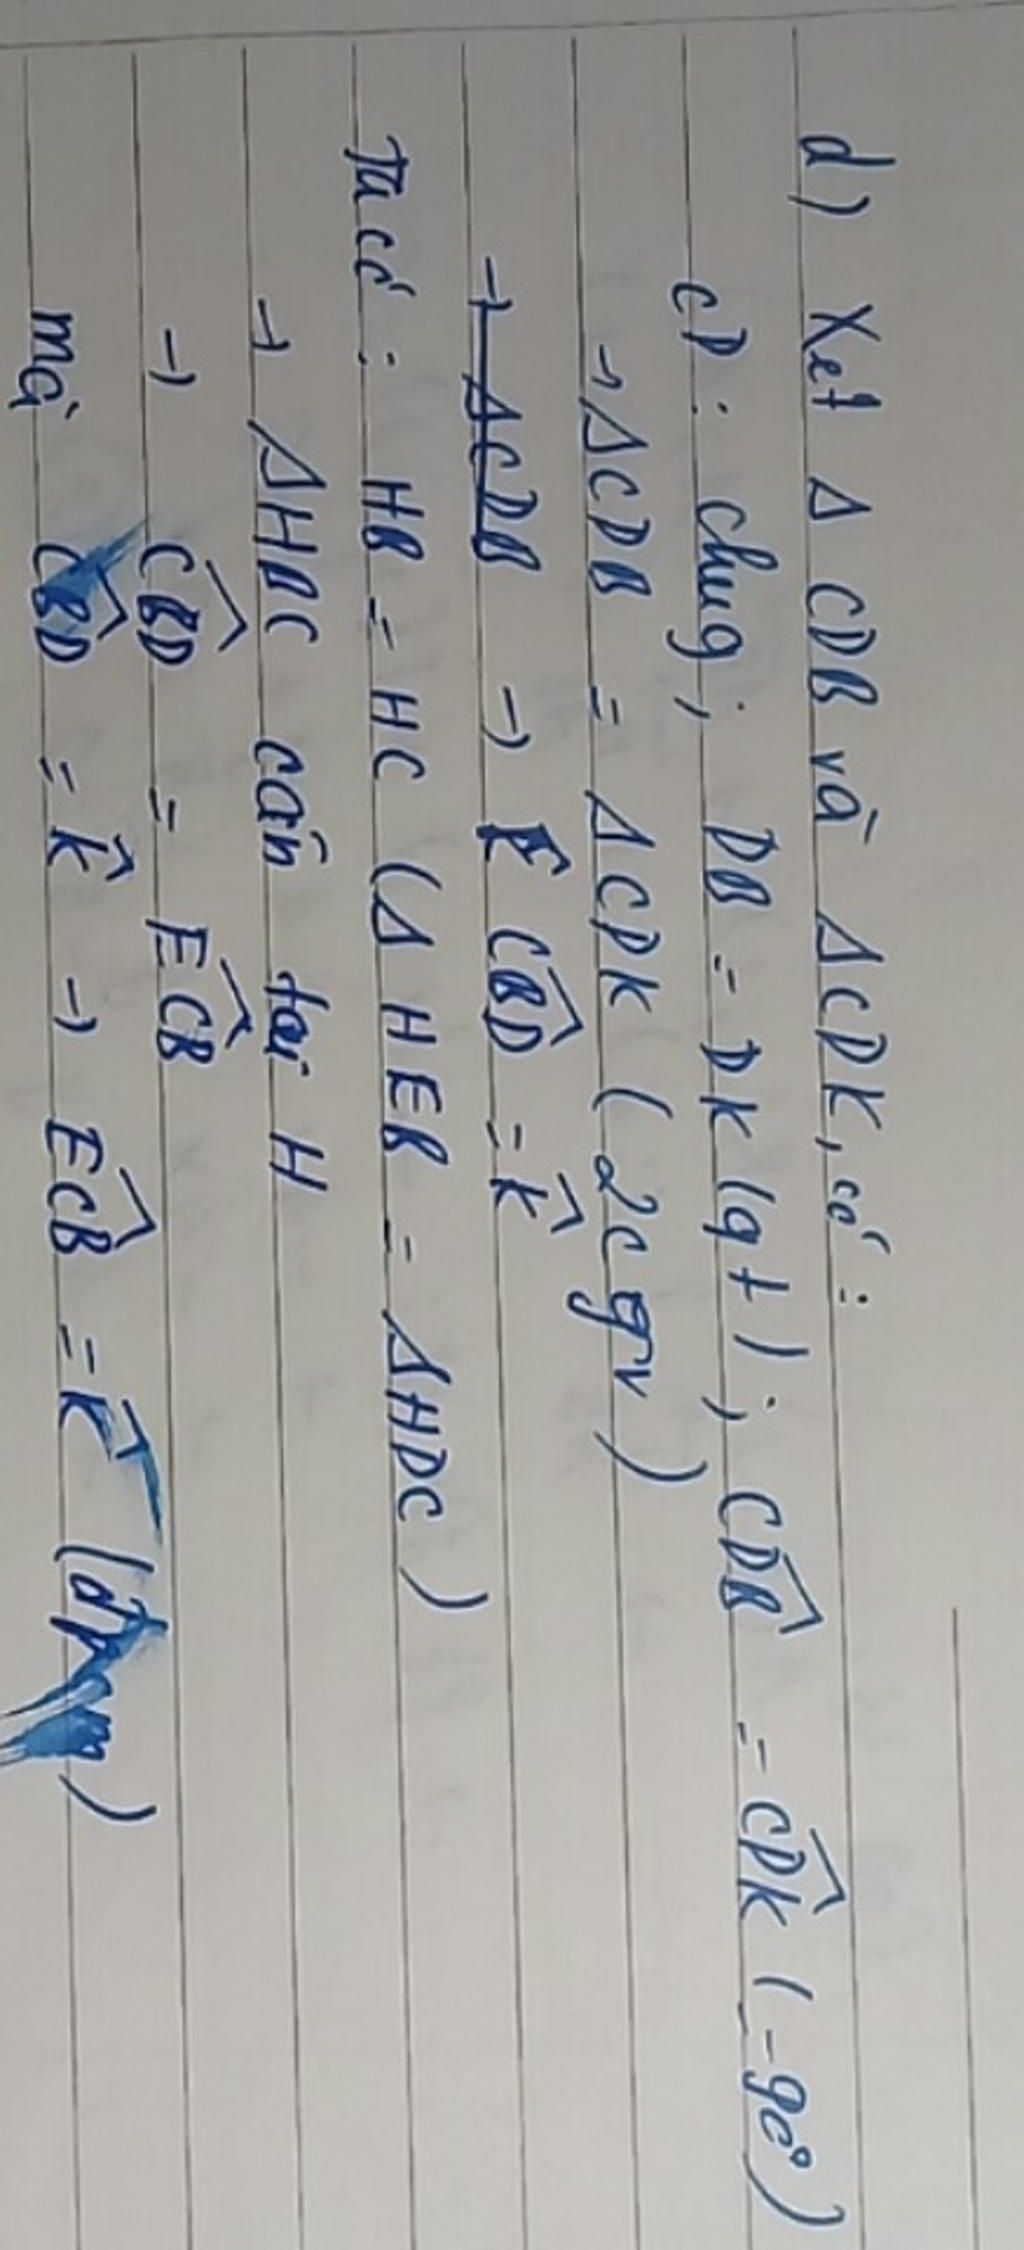 d) Xét Δ CDB và ΔCDK, có :
CD : chug ; DB = DK (gt) ; \widehat{CDB} = \widehat{CDK} (=90°)
→ΔCDB = ΔCDK (2cgv)
→ΔCDB → \widehat{CBD} = \widehat{K}
Ta có : HB = HC (Δ HEB = ΔHDC)
→ ΔHBC cân tại H
→ \widehat{CBD} = \widehat{ECB}
mà \widehat{CBD} = \widehat{K} → \widehat{ECB} = \widehat{K} (đpcm)